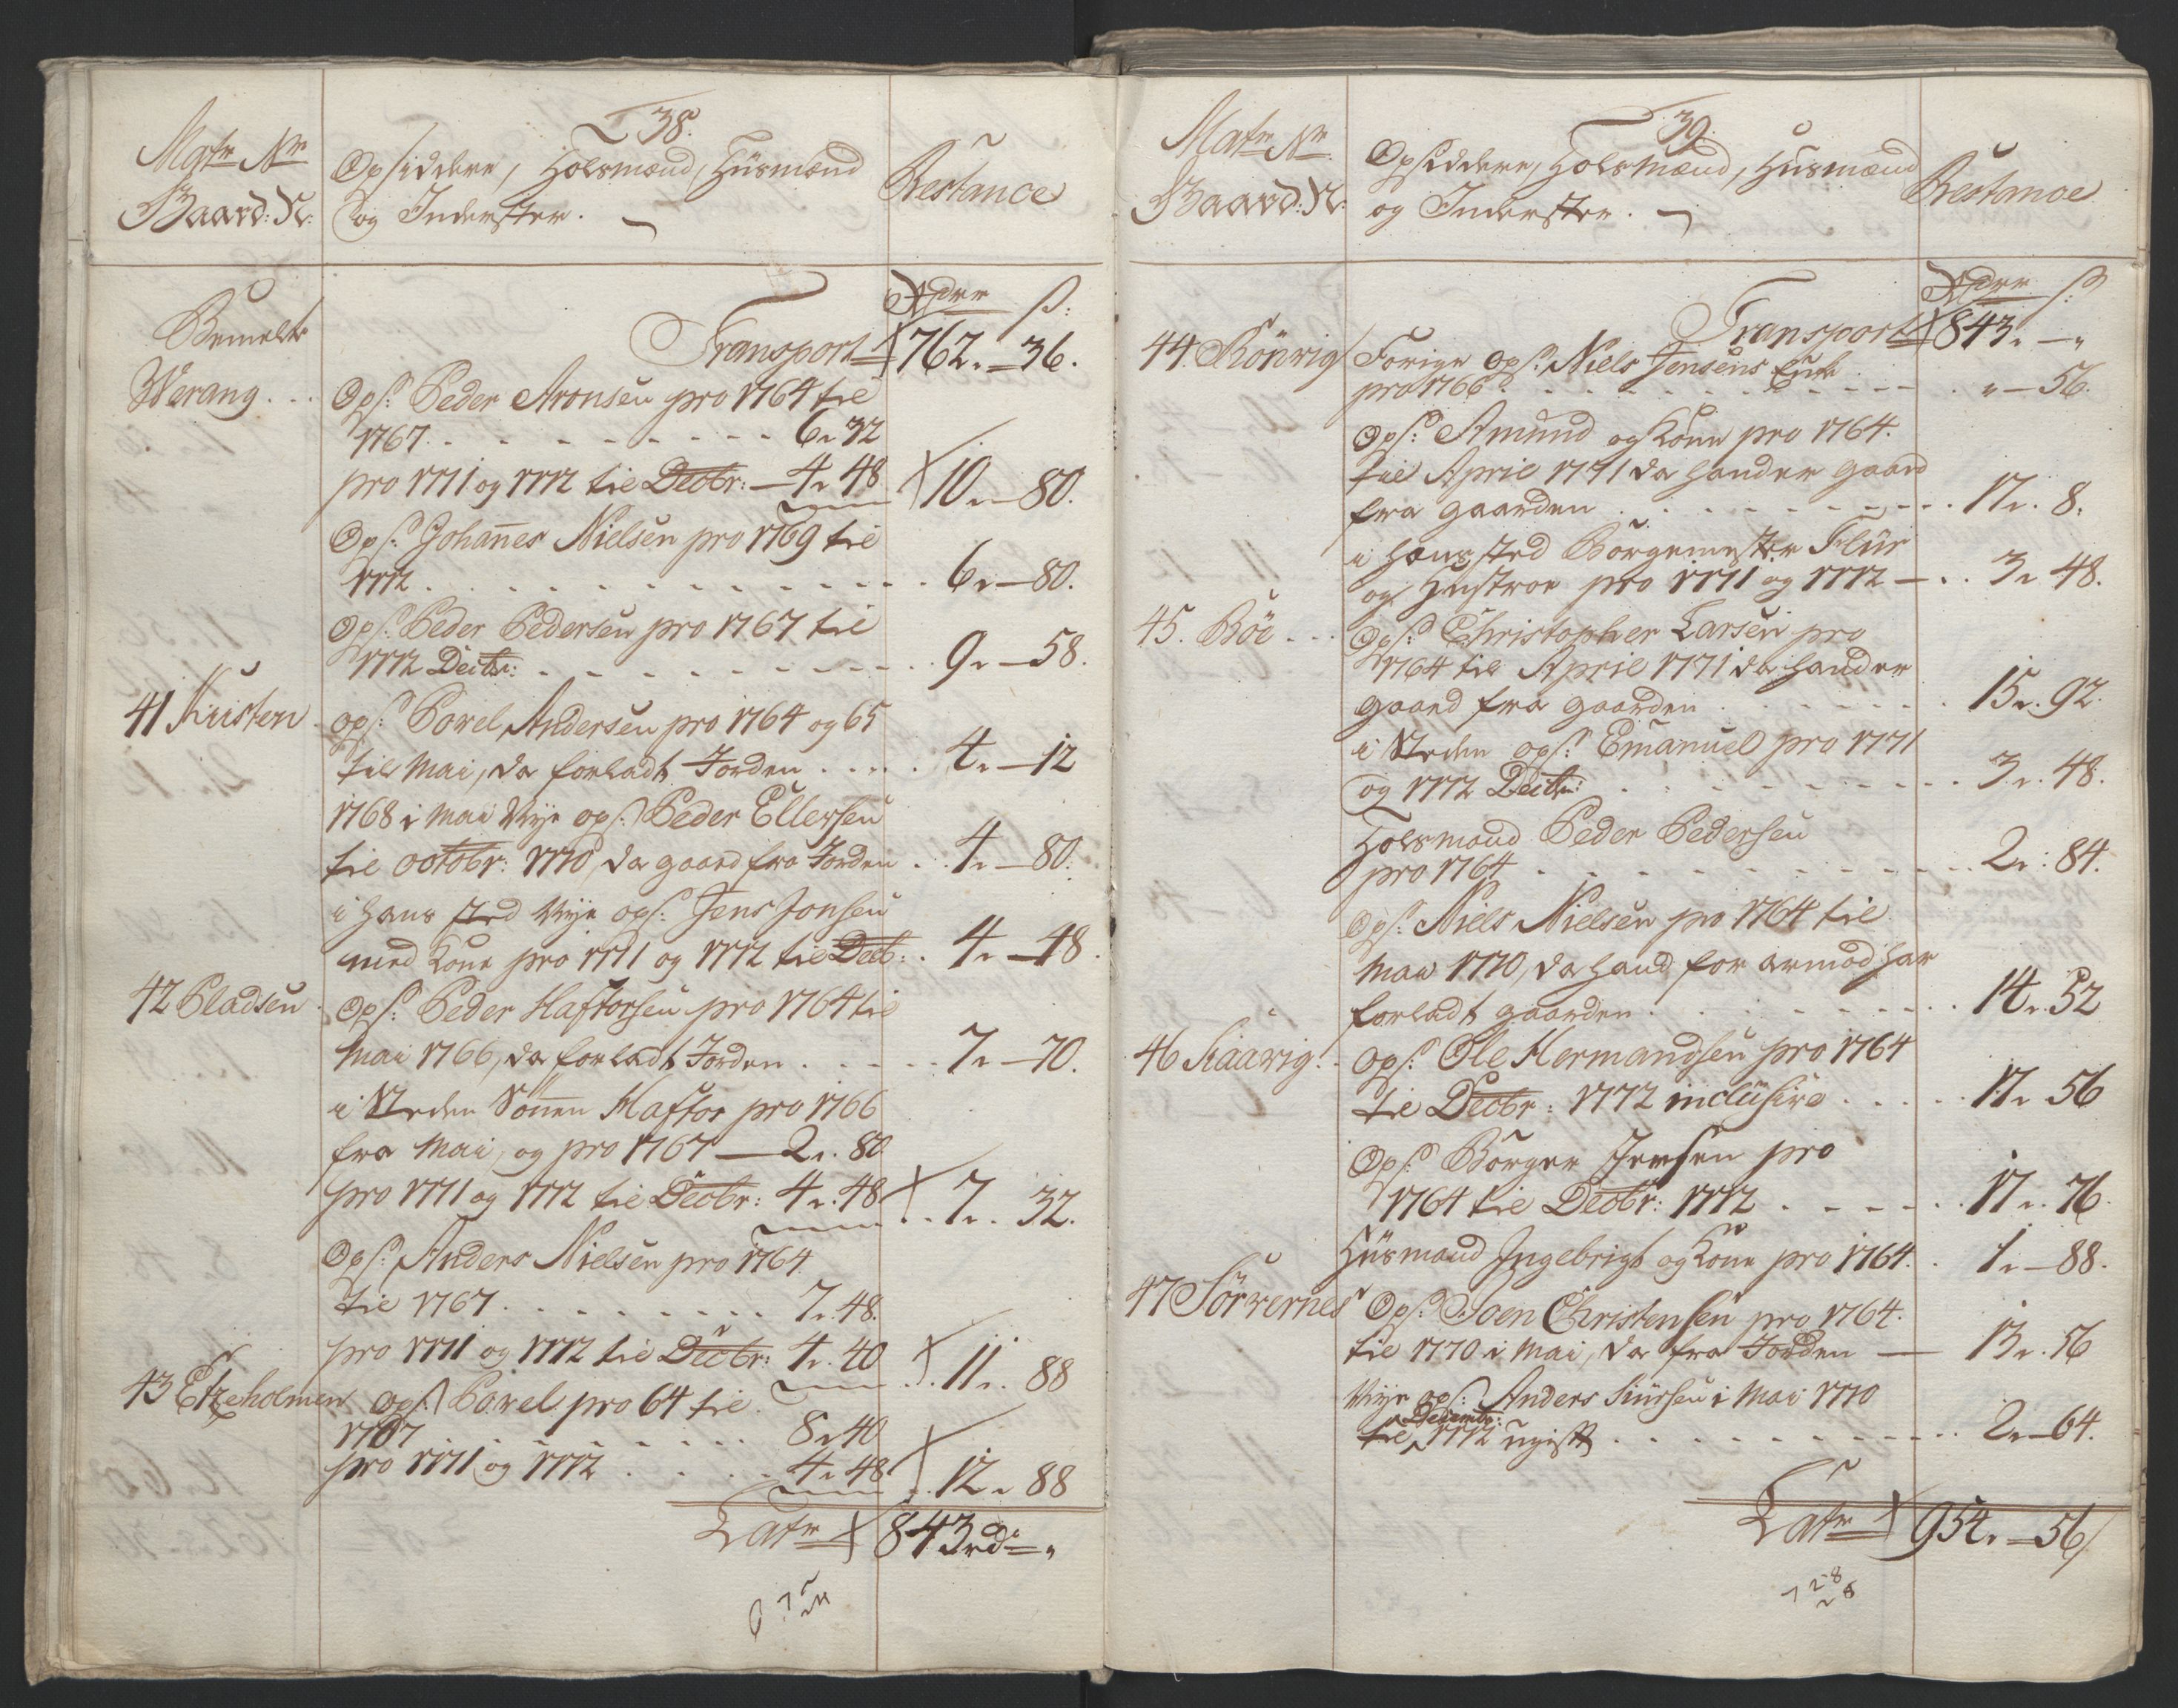 38.
Matr Nr
Gaard: N:
Opsiddere, Holsmænd, Huusmænd
og Inderster.
Restance
Rdr ß:
Bemelte
Werang
Transport 762 - 36.
Ops: Peder Aronsen pro 1764 til
1767 6 - 32
pro 1771 og 1772 til Decbr: 4 - 48 10 - 80.
Ops: Johannes Nielsen pro 1769 til
1772 6 - 80.
Ops: Peder Pedersen pro 1767 til
1772 Decbr: 9 - 58.
41 Kuisten Ops: Povel Andersen pro 1764 og 65
til Mai, da forladt Jorden 4 - 12
1768 i Mai Nye ops: Peder Ellersen
til octobr: 1770, da gaaed fra Jorden 4 - 80.
i hans sted Nye ops: Jens Jonsen
med Kone pro 1771 og 1772 til Decb: 4 - 48.
42 Pladsen Ops: Peder Haftorsen pro 1764 til
Mai 1766, da forladt Jorden 7 - 70.
i Steden Sönnen Haftor pro 1766
fra Mai, og pro 1767 2 - 80
pro 1771 og 1772 til Decbr: 4 - 48 7 - 32.
Ops: Anders Nielsen pro 1764
til 1767 7 - 48.
pro 1771 og 1772 til Decbr: 4 - 40 11 - 88
43 Etzeholmen ops: Povel pro 64 til
1767 8 - 40
pro 1771 og 1772 4 - 48 12 - 88
Latr 843 rd -
39.
Matr Nr
Gaard: N:
Opsiddere, Holsmænd, Husmænd
og Inderster.
Restance
Rdr ß:
Transport 843 -
44. Könvig Forige Ops: Niels Jensens Enke
pro 1766 - 56.
Ops: Amund og Kone pro 1764.
til April 1771 da hand er gaaed
fra gaarden 17 - 8.
i hans sted Borgemester Flür
og Hustroe pro 1771 og 1772 3 - 48.
45. Böe Ops: Christopher Larsen pro
1764 til April 1771 da hand er
gaaed fra gaarden 15 - 92.
i Steden ops: Emanuel pro 1771
og 1772 Decbr: 3 - 48.
Holsmand Peder Pedersen
pro 1764 2 - 84.
Ops: Niels Nielsen pro 1764 til
Mai 1770, da hand for armod har
forladt gaarden 14 - 52
46 Kaavig Ops: Ole Hermandsen pro 1764
til Decbr: 1772 inclusive 17 - 56
Ops: Börger Jensen pro
1764 til Decbr: 1772 17 - 76.
Huusmand Ingebrigt og Kone pro 1764. 1 - 88.
47 Sörvernes Ops: Joen Christensen pro 1764.
til 1770 i Mai, da fra Jorden 13 - 56
Nye ops: Anders Siursen i Mai 1770
Decembr:
til 1772 ugift 2 - 64.
Latr 954 - 56